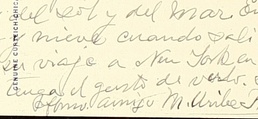 el sol y del mar
nieve cuando sali
viaje a New York en
tenga el gusto de verlo.
amigo M. Uribe
GENUINE CURTEICH-CHIC